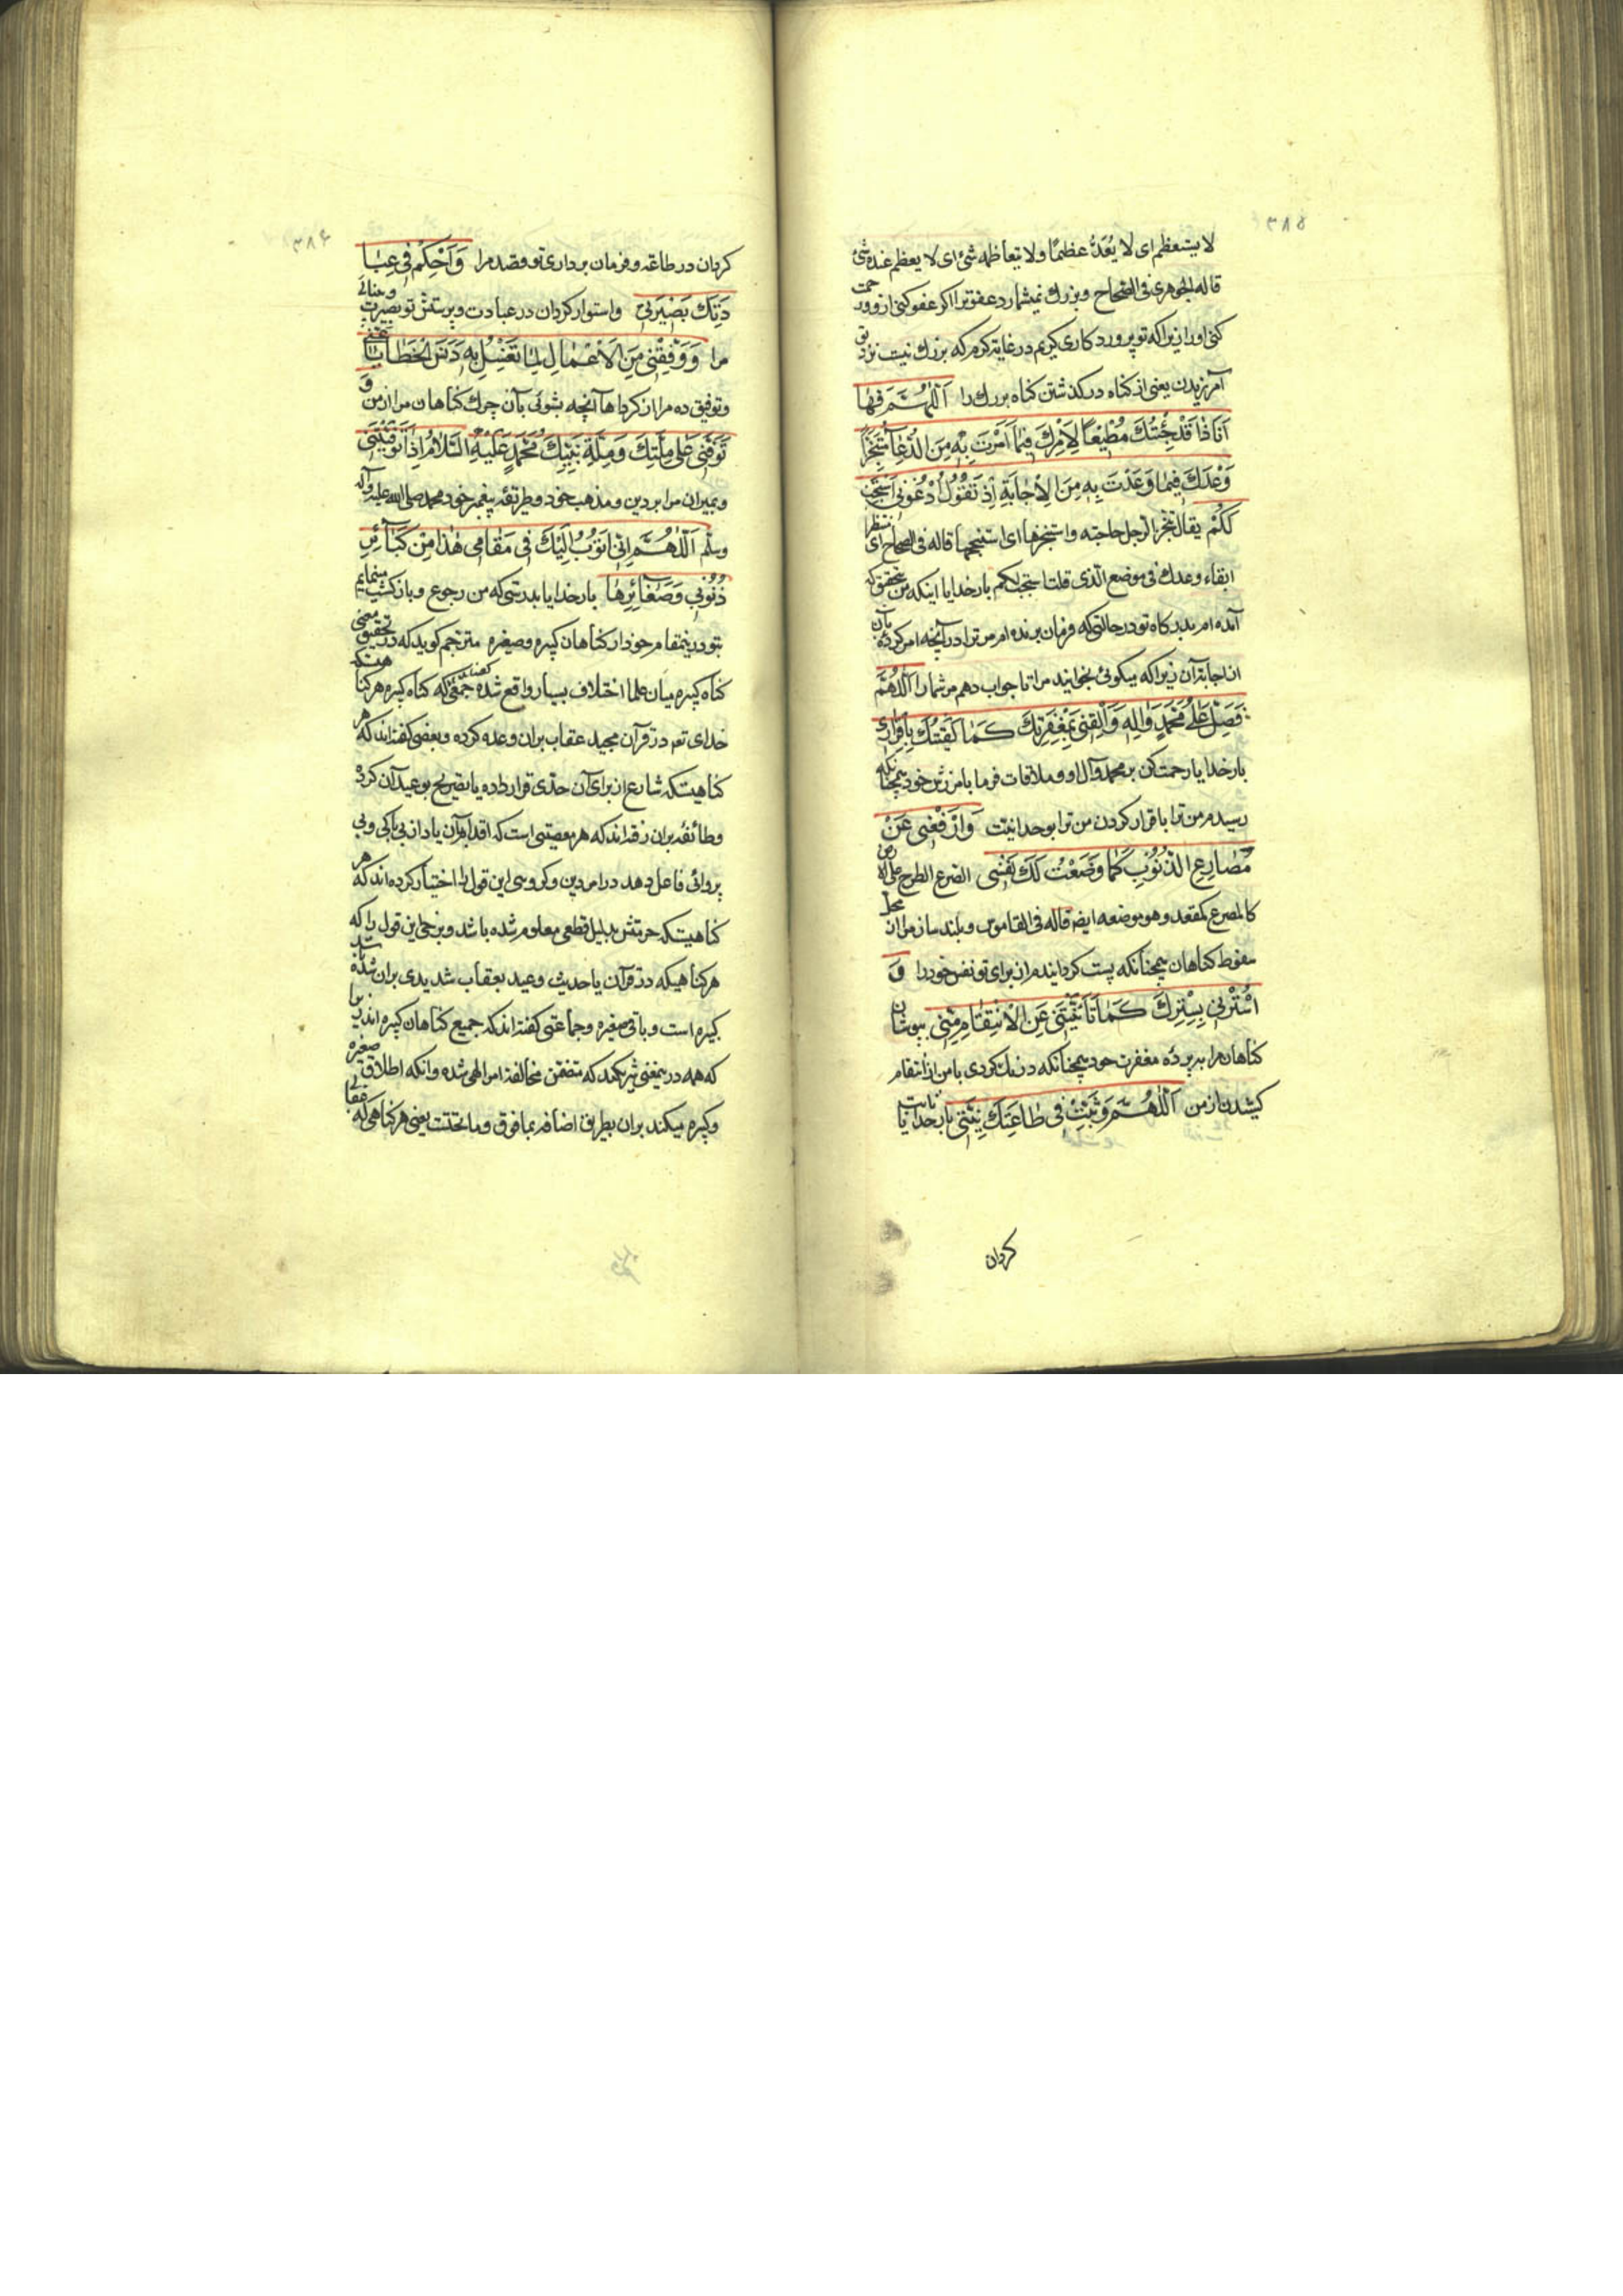 ۳۸۵
لا یستعظم ای لا یُعَدُّ عظمًا ولا یتعاظمه شیٔ ای لا یعظم عنده شیٔ
قاله الجوهری فی الصّحاح و بزرک نمیشمارد عفو ترا اکر عفو کنی ازو و رحمت
کنی او را زیرا که تو پروردکاری کریم در غایة کرم که بزرك نیست نزد تو
آمرزیدن یعنی از کناه در کذشتن کناه بزرك را اَللّٰهُمَّ فَهٰا
اَنَا ذَا قَدْ جِئْتُكَ مُطِیْعًا لِاَمْرِكَ فِیْمٰا اَمَرْتَ بِهِ مِنَ الدُّعٰآءِ مُتَنَجِّزًا
وَعْدَكَ فِیْمٰا وَعَدْتَ بِهِ مِنَ الْاِجٰابَةِ اِذْ تَقُوْلُ اُدْعُوْنِی اَسْتَجِبْ
لَكُمْ یقال تنجز الرجل حاجته و استنجزها ای استنجحها قاله فی الصحاح ای منتظرا
ایفاء وعدك فی موضع الذی قلت استجب لکم بار خدایا اینکه من بتحقیق که
آمده ام بدرکاه تو در حالتی که فرمان برنده ام مر ترا در آنچه امر کرده بآن
از اجابة آن زیرا که میکوئی بخوانید مرا تا جواب دهم مر شما را اَللّٰهُمَّ
فَصَلِّ عَلٰی مُحَمَّدٍ وَاٰلِهِ وَالْقِنِی بِمَغْفِرَتِكَ كَمٰا لَقِیْتُكَ بِاِقْرٰارِی
بار خدایا رحمت کن بر محمد و آل او و ملاقات فرما با من بامرزش خود همچنانکه
رسیدم من ترا باقرار کردن من ترا بوحدانیت وَارْفَعْنِی عَنْ
مَصٰارِعِ الذُّنُوْبِ كَمٰا وَضَعْتُ لَكَ نَفْسِی الصرع الطرح علی الارض
کالمصرع کمقعد و هو موضعه ایضا قاله فی القاموس و بلند ساز مرا از محل
سقوط کناهان همچنانکه پست کردانیدم از برای تو نفس خود را وَ
اسْتُرْنِی بِسِتْرِكَ كَمٰا تَاَنَّیْتَنِی عَنِ الْاِنْتِقٰامِ مِنِّی بپوشان
کناهان مرا بپرده مغفرت خود همچنانکه درنك کردی با من از انتقام
کشیدن از من اَللّٰهُمَّ وَثَبِّتْ فِی طٰاعَتِكَ نِیَّتِی بار خدایا ثابت
کردان
۳۸۶
کردان در طاعة و فرمان برداری تو قصد مرا وَاَحْكِمْ فِی عِبٰا
دَتِكَ بَصِیْرَتِی و استوار کردان در عبادت و پرستش تو بصیرت و بینائی
مرا وَوَفِّقْنِی مِنَ الْاَعْمٰالِ لِمٰا تَغْسِلُ بِهِ دَنَسَ الْخَطٰایٰا عَنِّی
و توفیق ده مرا از کردارها آنچه بشوئی بآن چرك کناهان مرا از من وَ
تَوَفَّنِی عَلٰی مِلَّتِكَ وَمِلَّةِ نَبِیِّكَ مُحَمَّدٍ عَلَیْهِ السَّلٰامُ اِذٰا تَوَفَّیْتَنِی
و بمیران مرا بر دین و مذهب خود و طریقهٔ پیغمبر خود محمد صلی الله علیه و آله
و سلّم اَللّٰهُمَّ اِنِّی اَتُوْبُ اِلَیْكَ فِی مَقٰامِی هٰذٰا مِنْ كَبٰآئِرِ
ذُنُوْبِی وَصَغٰآئِرِهٰا بار خدایا بدرستی که من رجوع و بازکشت مینمایم
بتو درینمقام خود از کناهان کبیره و صغیره مترجم کوید که در تحقیق معنی
کناه کبیره میان علما اختلاف بسیار واقع شده جمعی کفته‌اند که کناه کبیره هر کناهیستکه
خدای تعه در قرآن مجید عقاب بر آن وعده کرده و بعضی کفته‌اند که هر
کناهیستکه شارع از برای آن حدّی قرار داده یا تصریح بوعید آن کرده
و طائفه بر آن رفته‌اند که هر معصیتی است که اقدام بر آن یاد از بی باکی و بی
پروائی فاعل دهد در امر دین و کروهی این قول را اختیار کرده‌اند که هر
کناهیستکه حرمتش بدلیل قطعی معلوم شده باشد و برخی این قول را که
هر کناهیکه در قرآن یا حدیث وعید بعقاب شدیدی بر آن شده باشد
کبیره است و باقی صغیره و جماعتی کفته‌اند که جمیع کناهان کبیره‌اند زیرا
که همه در ینمعنی شریکند که متضمن مخالفة امر الهی شده و آنکه اطلاق صغیره
و کبیره میکنند بر آن بطریق اضافه بما فوق و ما تحتست یعنی هر کناهی که